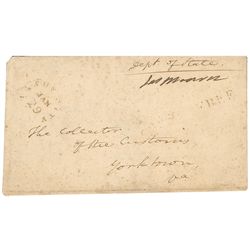 Dept of State.
Jas Monroe
JAN
29
FREE
The Collector
of the Customs
Yorktown,
Va